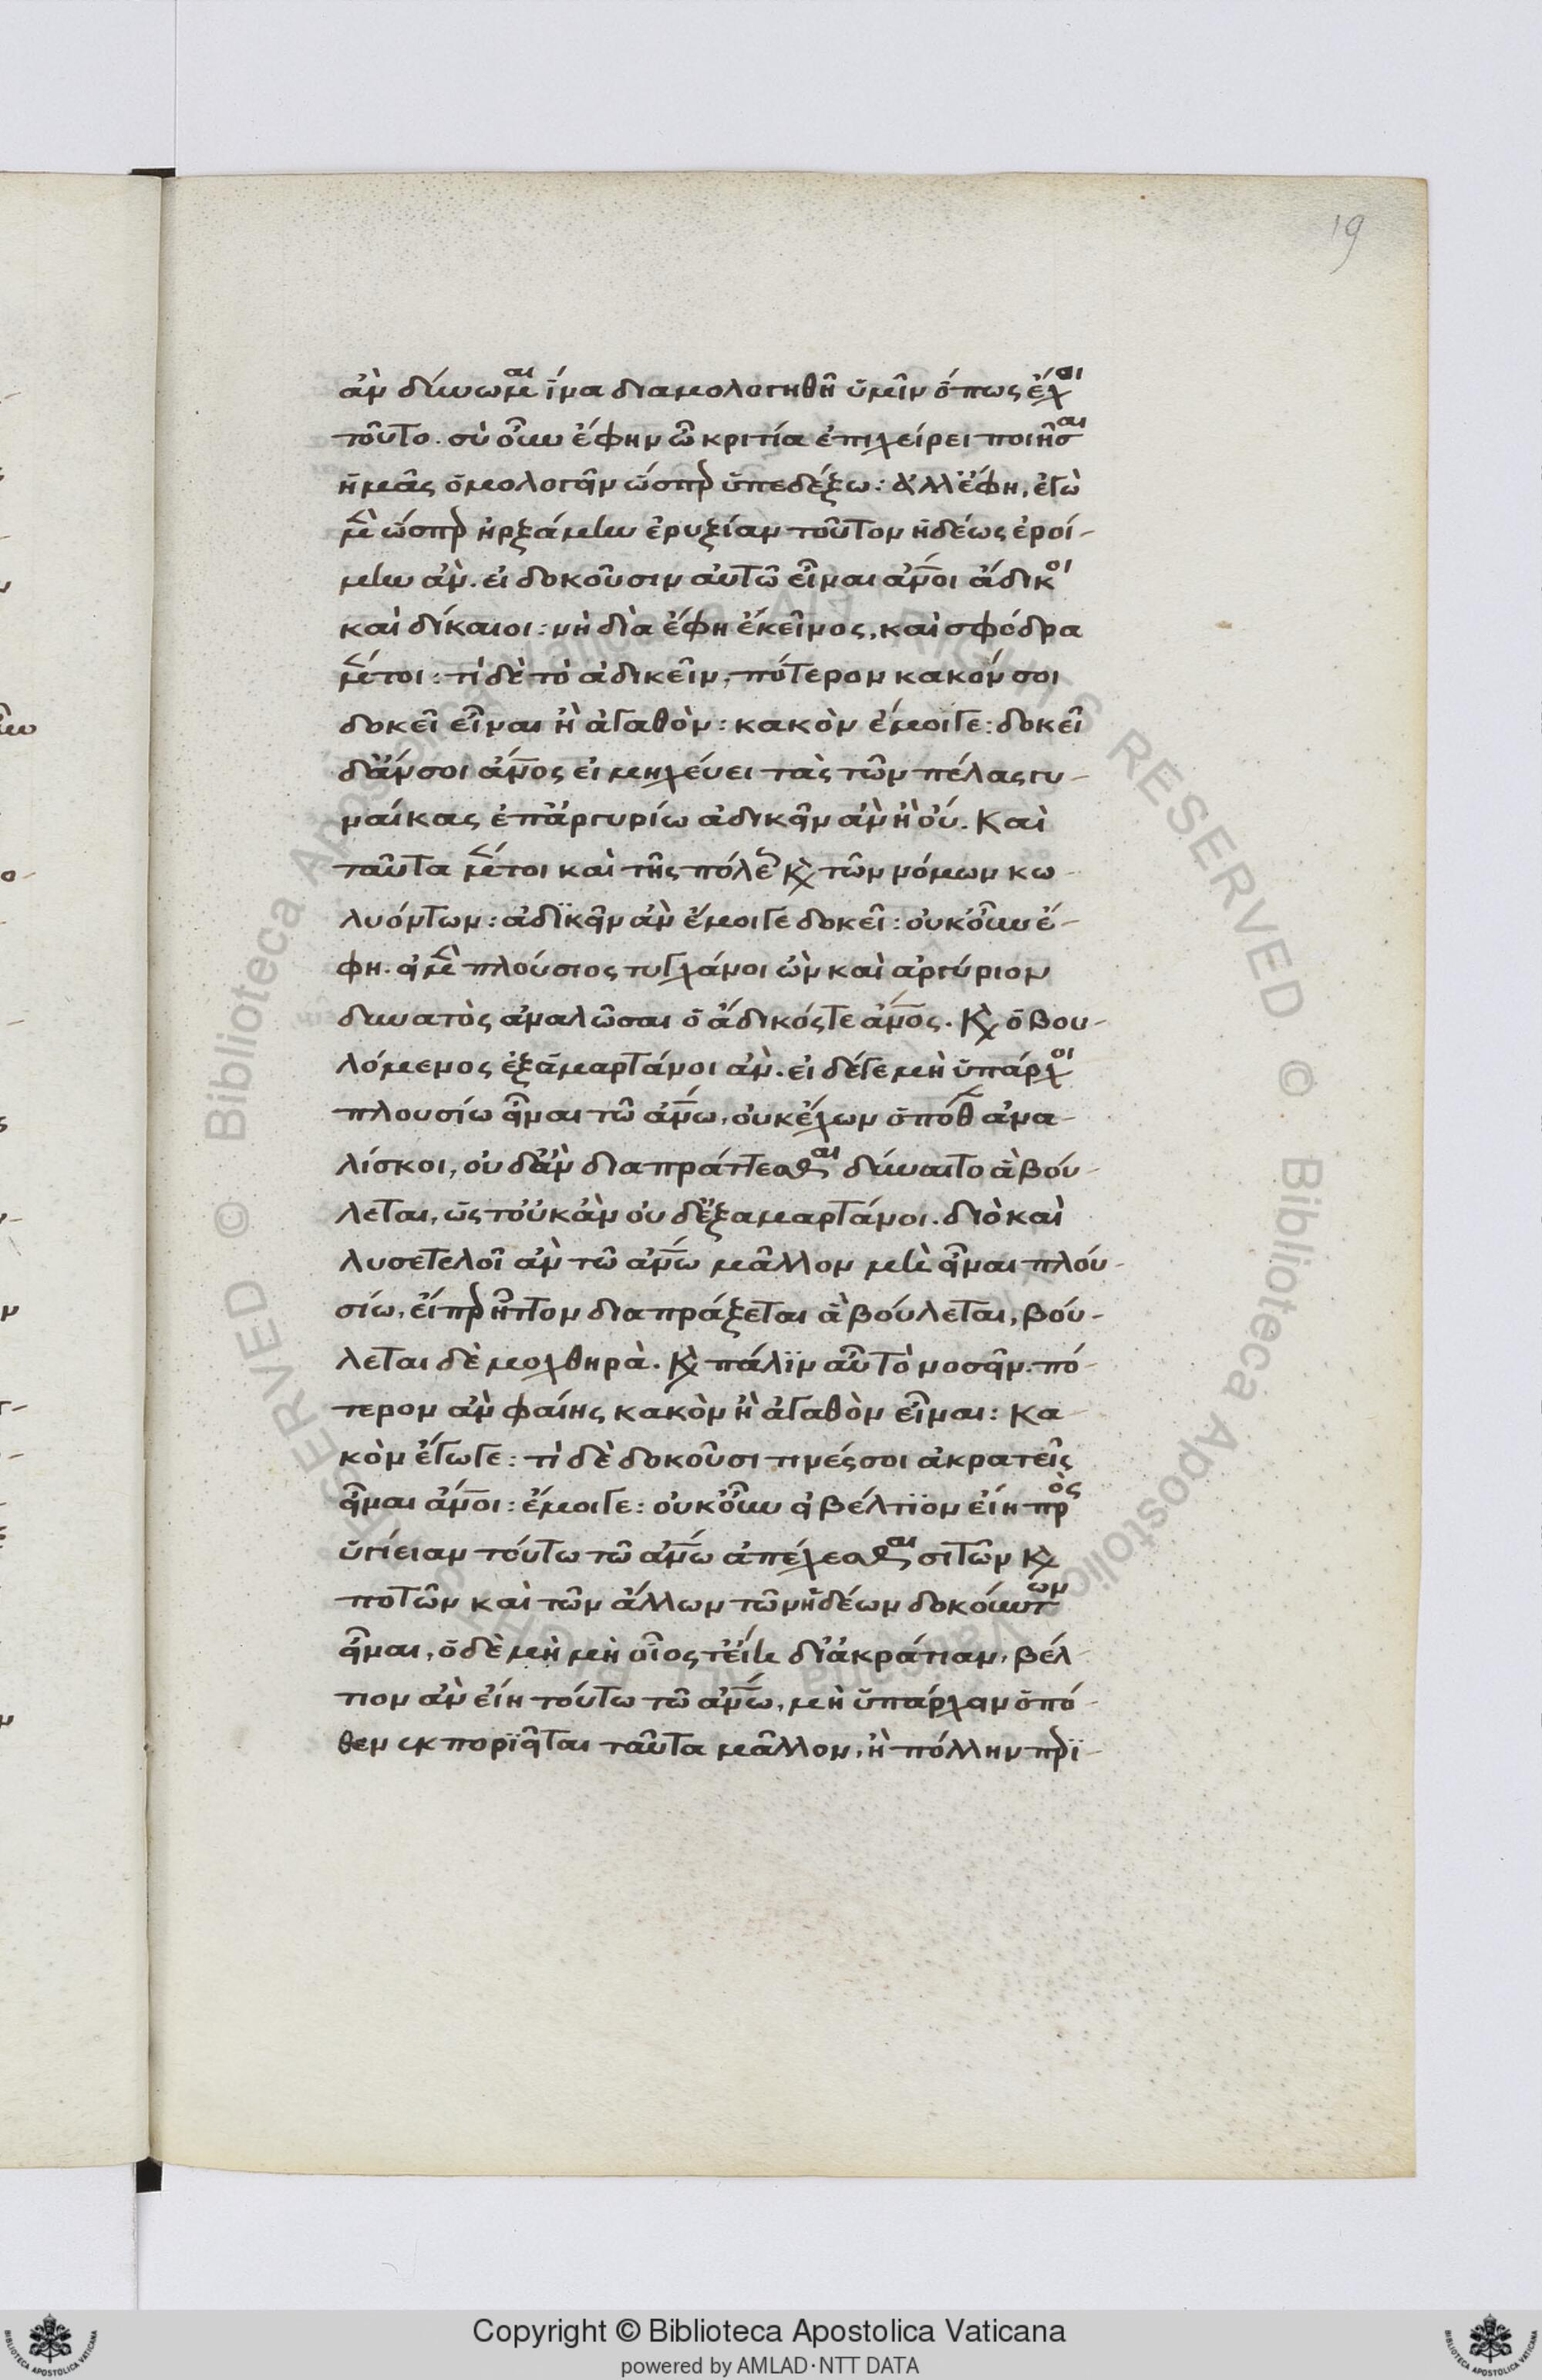 19
ἀν δύνωμαι ἵνα διαμολογηθῆ ὑμῖν ὅπως ἔχοι
τοῦτο. σὺ οὖν ἔφην ὦ κριτία ἐπιχείρει ποιῆσαι
ἡμᾶς ὁμολογεῖν ὥσπερ ὑπεδέξω: ἀλλ' ἔφη, ἐγὼ
μὲν ὥσπερ ἠρξάμην ἐρυξίαν τοῦτον ἡδέως ἐροί-
μην ἀν. εἰ δοκοῦσιν αὐτῶ εἶναι ἄνοι ἄδικοι
καὶ δίκαιοι: νὴ δία ἔφη ἐκεῖνος, καὶ σφόδρα
μέντοι: τί δὲ τὸ ἀδικεῖν, πότερον κακόν σοι
δοκεῖ εἶναι ἢ ἀγαθὸν: κακὸν ἔμοιγε: δοκεῖ
δ' ἄν σοι ἄνος εἰ μηχεύει τὰς τῶν πέλας γυ-
ναίκας ἐπ' ἀργυρίω ἀδικεῖν ἀν ἢ οὐ. Καὶ
ταῦτα μέντοι καὶ τῆς πόλεως καὶ τῶν νόμων κω-
λυόντων: ἀδϊκεῖν ἀν ἔμοιγε δοκεῖ: οὐκοῦν ἔ-
φη. εἰ μὲν πλούσιος τυγχάνοι ὢν καὶ ἀργύριον
δυνατὸς ἀναλῶσαι ὁ ἄδικός τε ἄνος. καὶ ὁ βου-
λόμενος ἐξαμαρτάνοι ἀν. εἰ δέ γε μὴ ὑπάρχοι
πλουσίω εἶναι τῶ ἄνω, οὐκ ἔχων ὁπόθεν ἀνα-
λίσκοι, οὐδ' ἀν διαπράττεσθαι δύναιτο ἃ βού-
λεται, ὥστ' οὐκ ἀν οὐδ' ἐξαμαρτάνοι. διὸ καὶ
λυσετελοῖ ἀν τῶ ἄνω μᾶλλον μὴ εἶναι πλου-
σίω, εἴπερ ἧττον διαπράξεται ἃ βούλεται, βού-
λεται δὲ μοχθηρὰ. καὶ πάλϊν αὖ τὸ νοσεῖν. πό-
τερον ἀν φαίης κακὸν ἢ ἀγαθὸν εἶναι: Κα-
κὸν ἔγωγε: τὶ δὲ δοκοῦσι τινές σοι ἀκρατεῖς
εἶναι ἄνοι: ἔμοιγε: οὐκοῦν εἰ βέλτϊον εἴη πρὸς
ὑγίειαν τούτω τῶ ἄνω ἀπέχεσθαι σιτῶν καὶ
ποτῶν καὶ τῶν ἄλλων τῶν ἡδέων δοκούντων
εἶναι, ὁ δὲ μὴ μὴ οἷος τ' εἴη δι' ἀκράτιαν, βέλ-
τιον ἀν εἴη τούτω τῶ ἄνω, μὴ ὑπάρχειν ὁπό-
θεν ἐκπορϊεῖται ταῦτα μᾶλλον, ἢ πόλλην περϊ-
Copyright © Biblioteca Apostolica Vaticana
powered by AMLAD·NTT DATA